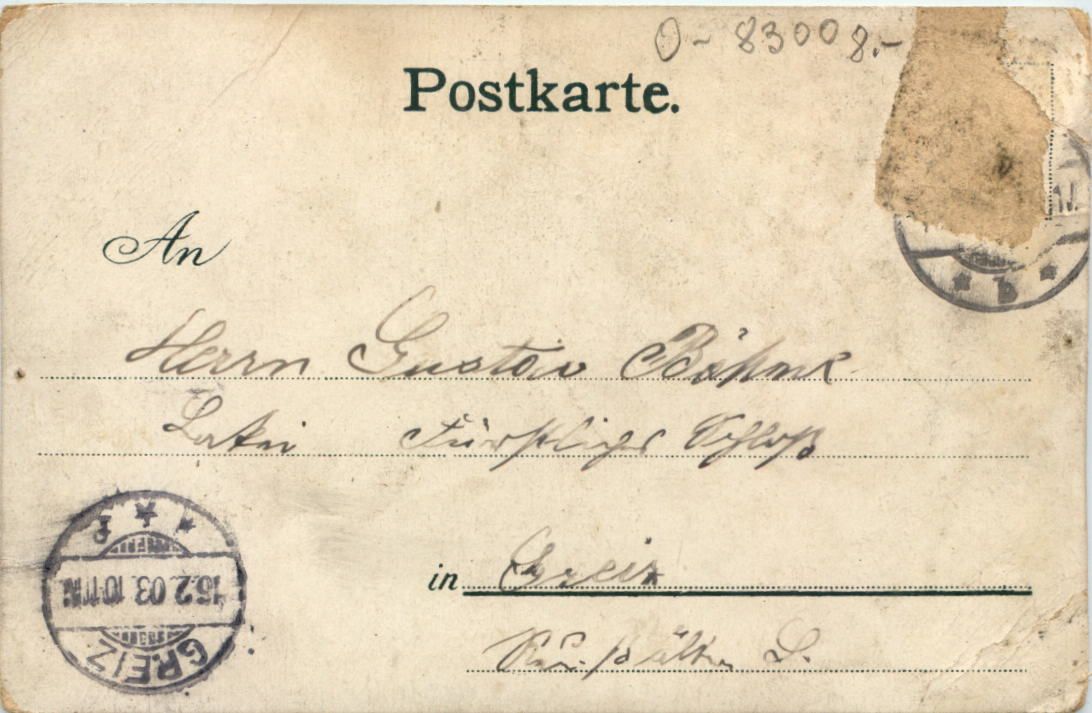 O - 83008.-
Postkarte.
An
Herrn Gustav Böhme
Lakei Fürstliches Schloß
in Greiz
Reuß ältere L.
GREIZ
16.2.03 10-11N
* b *